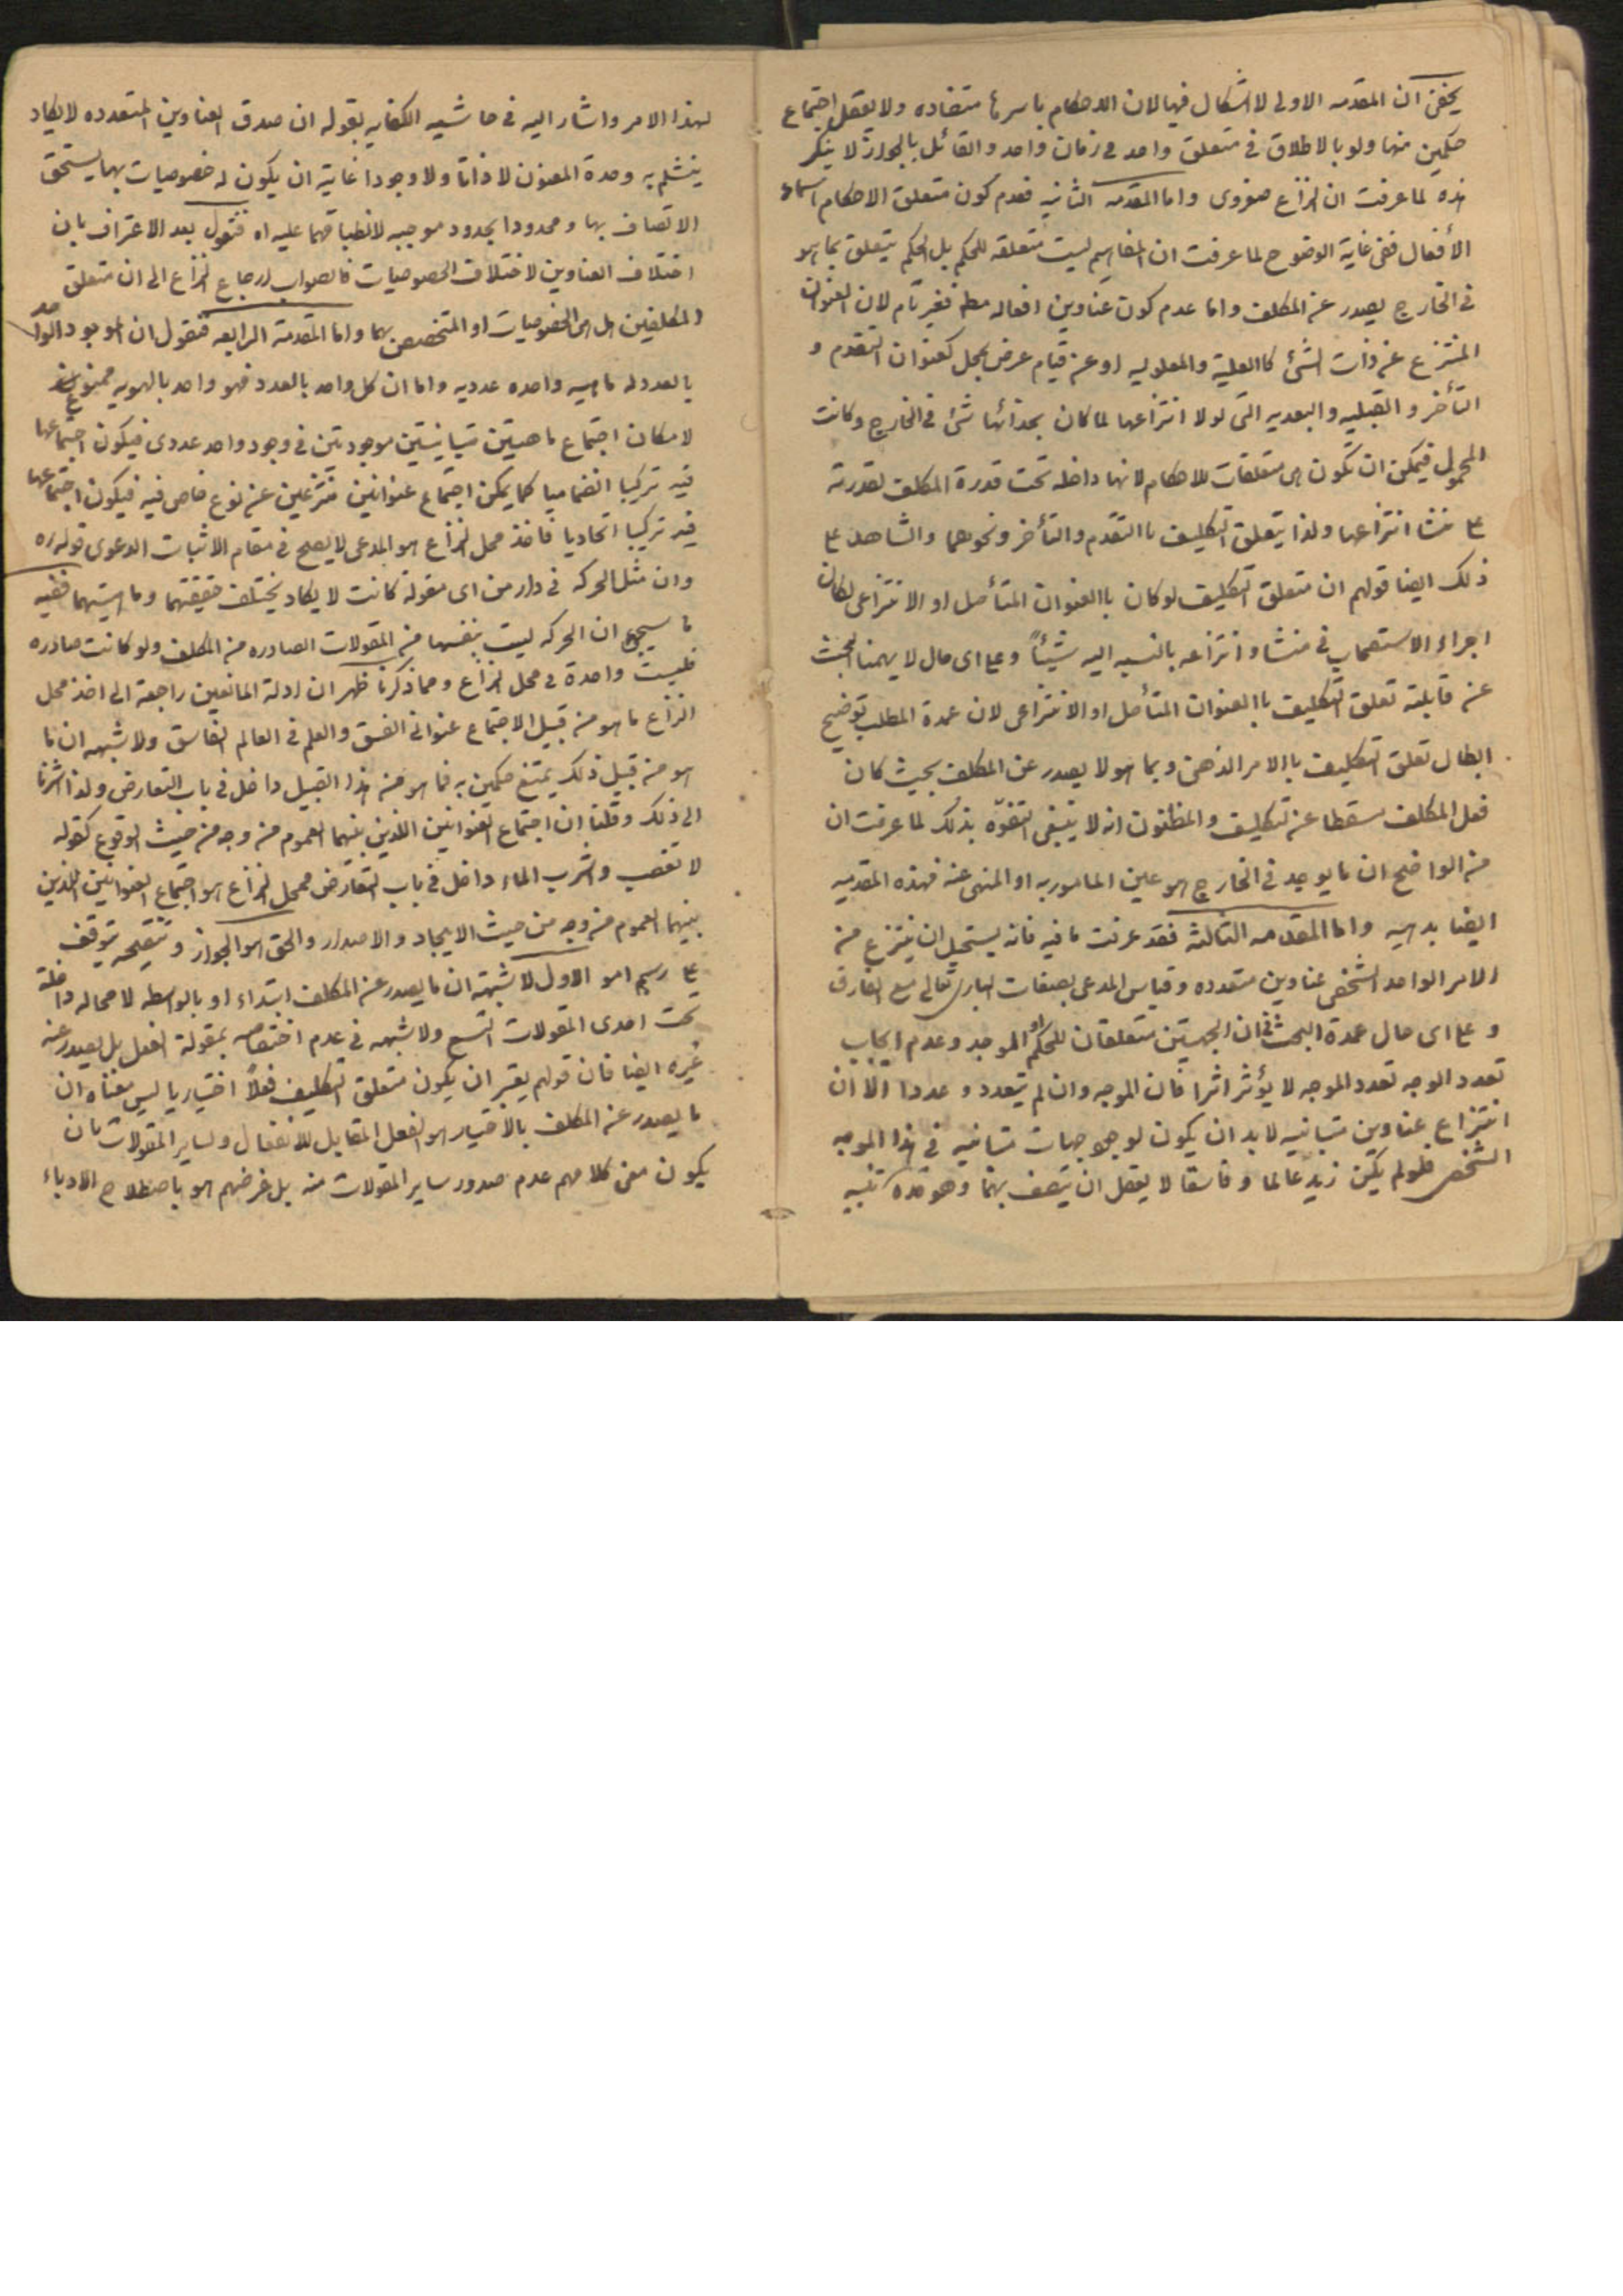 يخفى ان المقدمه الاولى لا اشكال فيها لان الاحكام باسرها متضاده ولا يعقل اجتماع
حكمين منها ولو بالاطلاق فى متعلق واحد فى زمان واحد والقائل بالجواز لا ينكر
هذه لما عرفت ان النزاع صغروى واما المقدمه الثانيه فعدم كون متعلق الاحكام اسماء
الأفعال ففى غاية الوضوح لما عرفت ان المفاهيم ليست متعلقه للحكم بل الحكم يتعلق بما هو
فى الخارج يصدر عن المكلف واما عدم كون عناوين افعاله مط فغير تام لان العنوان
المنتزع عن ذات الشئ كاالعلية والمعلوليه او عن قيام عرض بمحل كعنوان التقدم و
التأخر والقبليه والبعديه التى لولا انتزاعها لما كان بحذائها شئ فى الخارج وكانت
المحمول فيمكن ان تكون هى متعلقات للاحكام لانها داخله تحت قدرة المكلف لقدرته
على منشا انتزاعها ولذا يتعلق التكليف باالتقدم والتأخر ونحوهما والشاهد على
ذلك ايضا قولهم ان متعلق التكليف لو كان باالعنوان المتأصل او الانتزاعى لكان
اجراء الاستصحاب فى منشاء انتزاعه بالنسبه اليه شيئاً وعلى اى حال لا يهمنا البحث
عن قابلية تعلق التكليف باالعنوان المتأصل او الانتزاعى لان عمدة المطلب توضيح
ابطال تعلق التكليف باالامر الذهنى وبما هو لا يصدر عن المكلف بحيث كان
فعل المكلف مسقطا عن تكليف والمظنون انه لا ينبغى التفوّه بذلك لما عرفت ان
من الواضح ان ما يوجد فى الخارج هو عين المامور به او المنهى عنه فهذه المقدمه
ايضا بديهيه واما المقدمه الثالثه فقد عرفت ما فيه فانه يستحيل ان ينتزع من
الامر الواحد الشخصى عناوين متعدده وقياس المدعى بصفات البارى تعالى مع الفارق
و على اى حال عمدة البحث فى ان الجهتين متعلقان للحكم او الموجد وعدم ايجاب
تعدد الوجه تعدد الموجه لا يؤثر اثرا فان الموجه وان لم يتعدد وعددا الا ان
انتزاع عناوين متباينه لا بد ان يكون لوجود جهات متباينه فى هذا الموجه
الشخصى فلو لم يكن زيد عالما وفاسقا لا يعقل ان يتصف بهما وهو قده تنبيه
لهذا الامر واشار اليه فى حاشيه الكفايه بقوله ان صدق العناوين المتعدده لا يكاد
ينثلم به وحدة المعنون لا ذاتا ولا وجودا غايته ان يكون له خصوصيات بها يستحق
الاتصاف بها ومحدودا بحدود موجبه لانطباقهما عليه اه فنقول بعد الاعتراف بان
اختلاف العناوين لاختلاف الخصوصيات فالصواب ارجاع النزاع الى ان متعلق
المكلفين هل هى الخصوصيات او المتخصص بهما واما المقدمة الرابعه فنقول ان الموجود الواحد
بالعدد له ماهيه واحده عدديه واما ان كل واحد بالعدد فهو واحد بالهويه فممنوع
لامكان اجتماع ماهيتين متباينتين موجودتين فى وجود واحد عددى فيكون اجتماعها
فيه تركيبا انضماميا كما يمكن اجتماع عنوانين منتزعين عن نوع خاص فيه فيكون اجتماعها
فيه تركيبا اتحاديا فاخذ محل النزاع هو المدعى لا يصح فى مقام الاثبات الدعوى قوله ره
وان مثل الحركه فى دار من اى مقوله كانت لا يكاد يختلف حقيقتهما وماهيتهما ففيه
ما سيجئ ان الحركه ليست بنفسها من المقولات الصادره من المكلف ولو كانت صادره
فليست واحدة فى محل النزاع ومما ذكرنا ظهر ان ادلة المانعين راجعة الى اخذ محل
النزاع ما هو من قبيل الاجتماع عنوانى الفسق والعلم فى العالم الفاسق ولا شبهه ان ما
هو من قبيل ذلك يمتنع حكمين به فما هو من هذا القبيل داخل فى باب التعارض ولذا اشرنا
الى ذلك وقلنا ان اجتماع العنوانين اللذين بينهما العموم من وجه من حيث الوقوع كقوله
لا تغصب واشرب الماء داخل فى باب التعارض فمحل النزاع هو اجتماع العنوانين اللذين
بينهما العموم من وجه من حيث الايجاد والاصدار والحق هو الجواز وتنقيحه يتوقف
على رسم امو الاول لا شبهة ان ما يصدر عن المكلف ابتداء او بالواسطه لا محاله داخلة
تحت احدى المقولات التسع ولا شبهه فى عدم اختصاصه بمقولة الفعل بل يصدر عنه
غيره ايضا فان قولهم يعتبر ان يكون متعلق التكليف فعلاً اختياريا ليس معناه ان
ما يصدر عن المكلف بالاختيار هو الفعل المقابل للانفعال ولساير المقولات بان
يكون معنى كلامهم عدم صدور ساير المقولات منه بل غرضهم هو باصطلاح الادباء